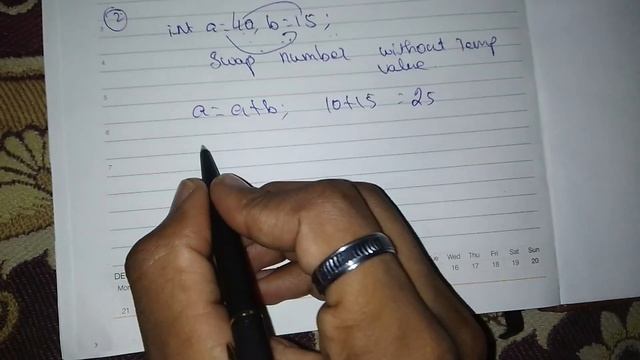 2 int a=40, b=15;
swap number without temp
value
a=a+b; 10+15 =25
Wed Thu Fri Sat Sun
16 17 18 19 20
21